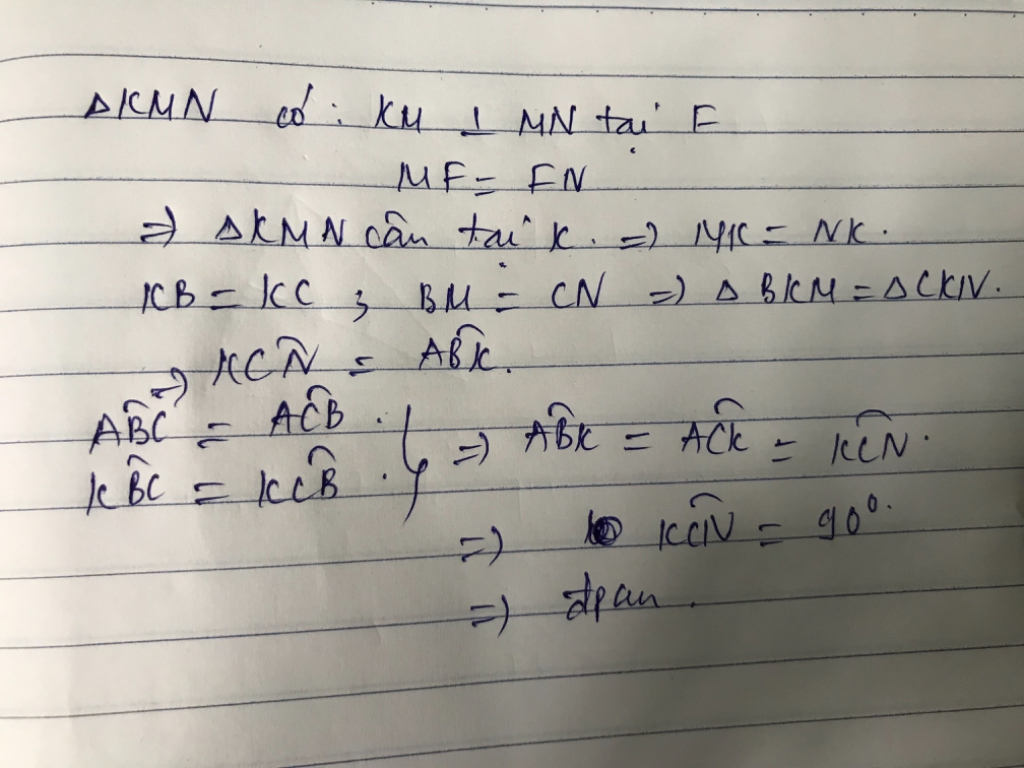 ΔKMN có : KM ⊥ MN tại F
MF = FN
=> ΔKMN cân tại K. => MK = NK.
KB = KC ; BM = CN => Δ BKM = ΔCKN.
=> KCN̂ = AB̂K.
AB̂C = AĈB .
KB̂C = KĈB . } => AB̂K = AĈK = KĈN.
=> KĈN = 90°.
=> đpcm.